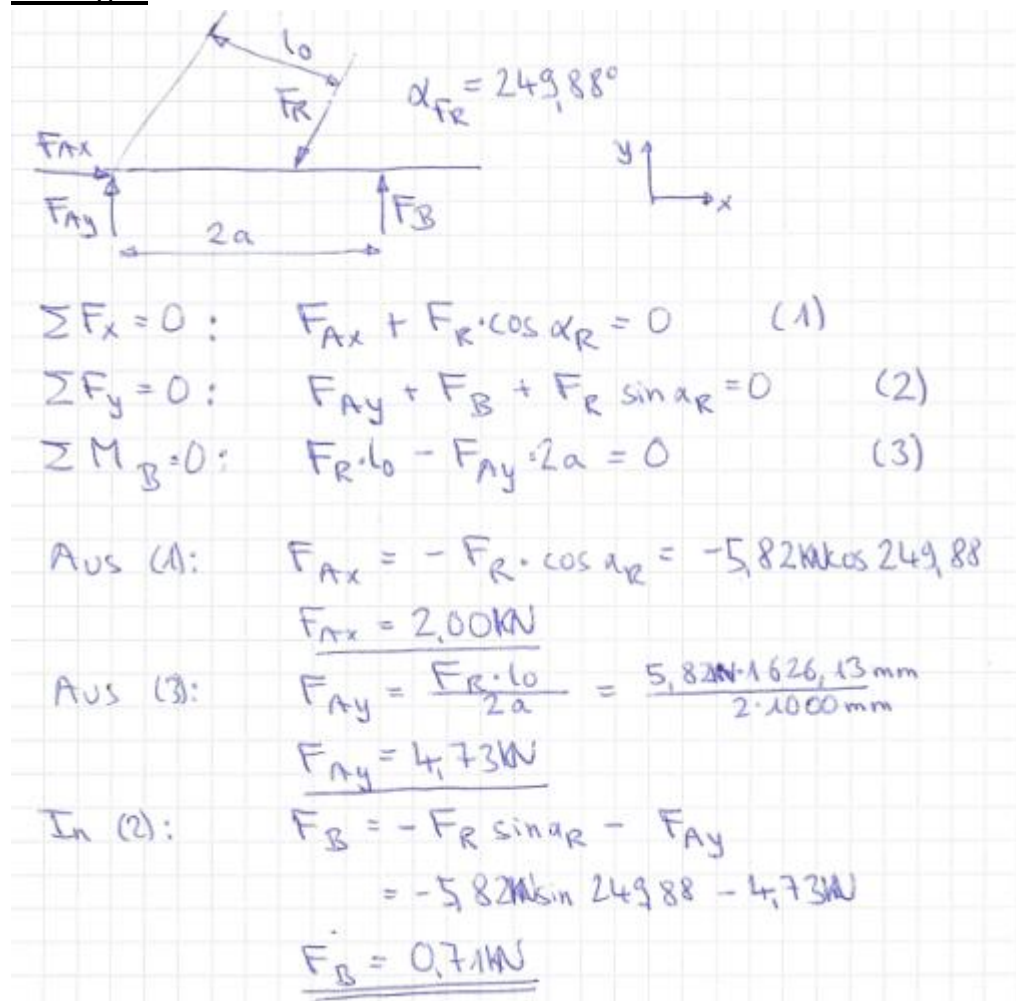 l₀
F_R α_FR = 249,88°
F_Ax
y
x
F_Ay
F_B
2a
ΣF_x = 0 : F_Ax + F_R · cos α_R = 0 (1)
ΣF_y = 0 : F_Ay + F_B + F_R sin α_R = 0 (2)
ΣM_B = 0 : F_R · l₀ - F_Ay · 2a = 0 (3)
Aus (1): F_Ax = - F_R · cos α_R = -5,82kN cos 249,88
F_Ax = 2,00kN
Aus (3): F_Ay = F_R · l₀ / 2a = 5,82kN · 1626,13 mm / 2 · 1000 mm
F_Ay = 4,73kN
In (2): F_B = - F_R sin α_R - F_Ay
= -5,82kN sin 249,88 - 4,73kN
F_B = 0,71kN